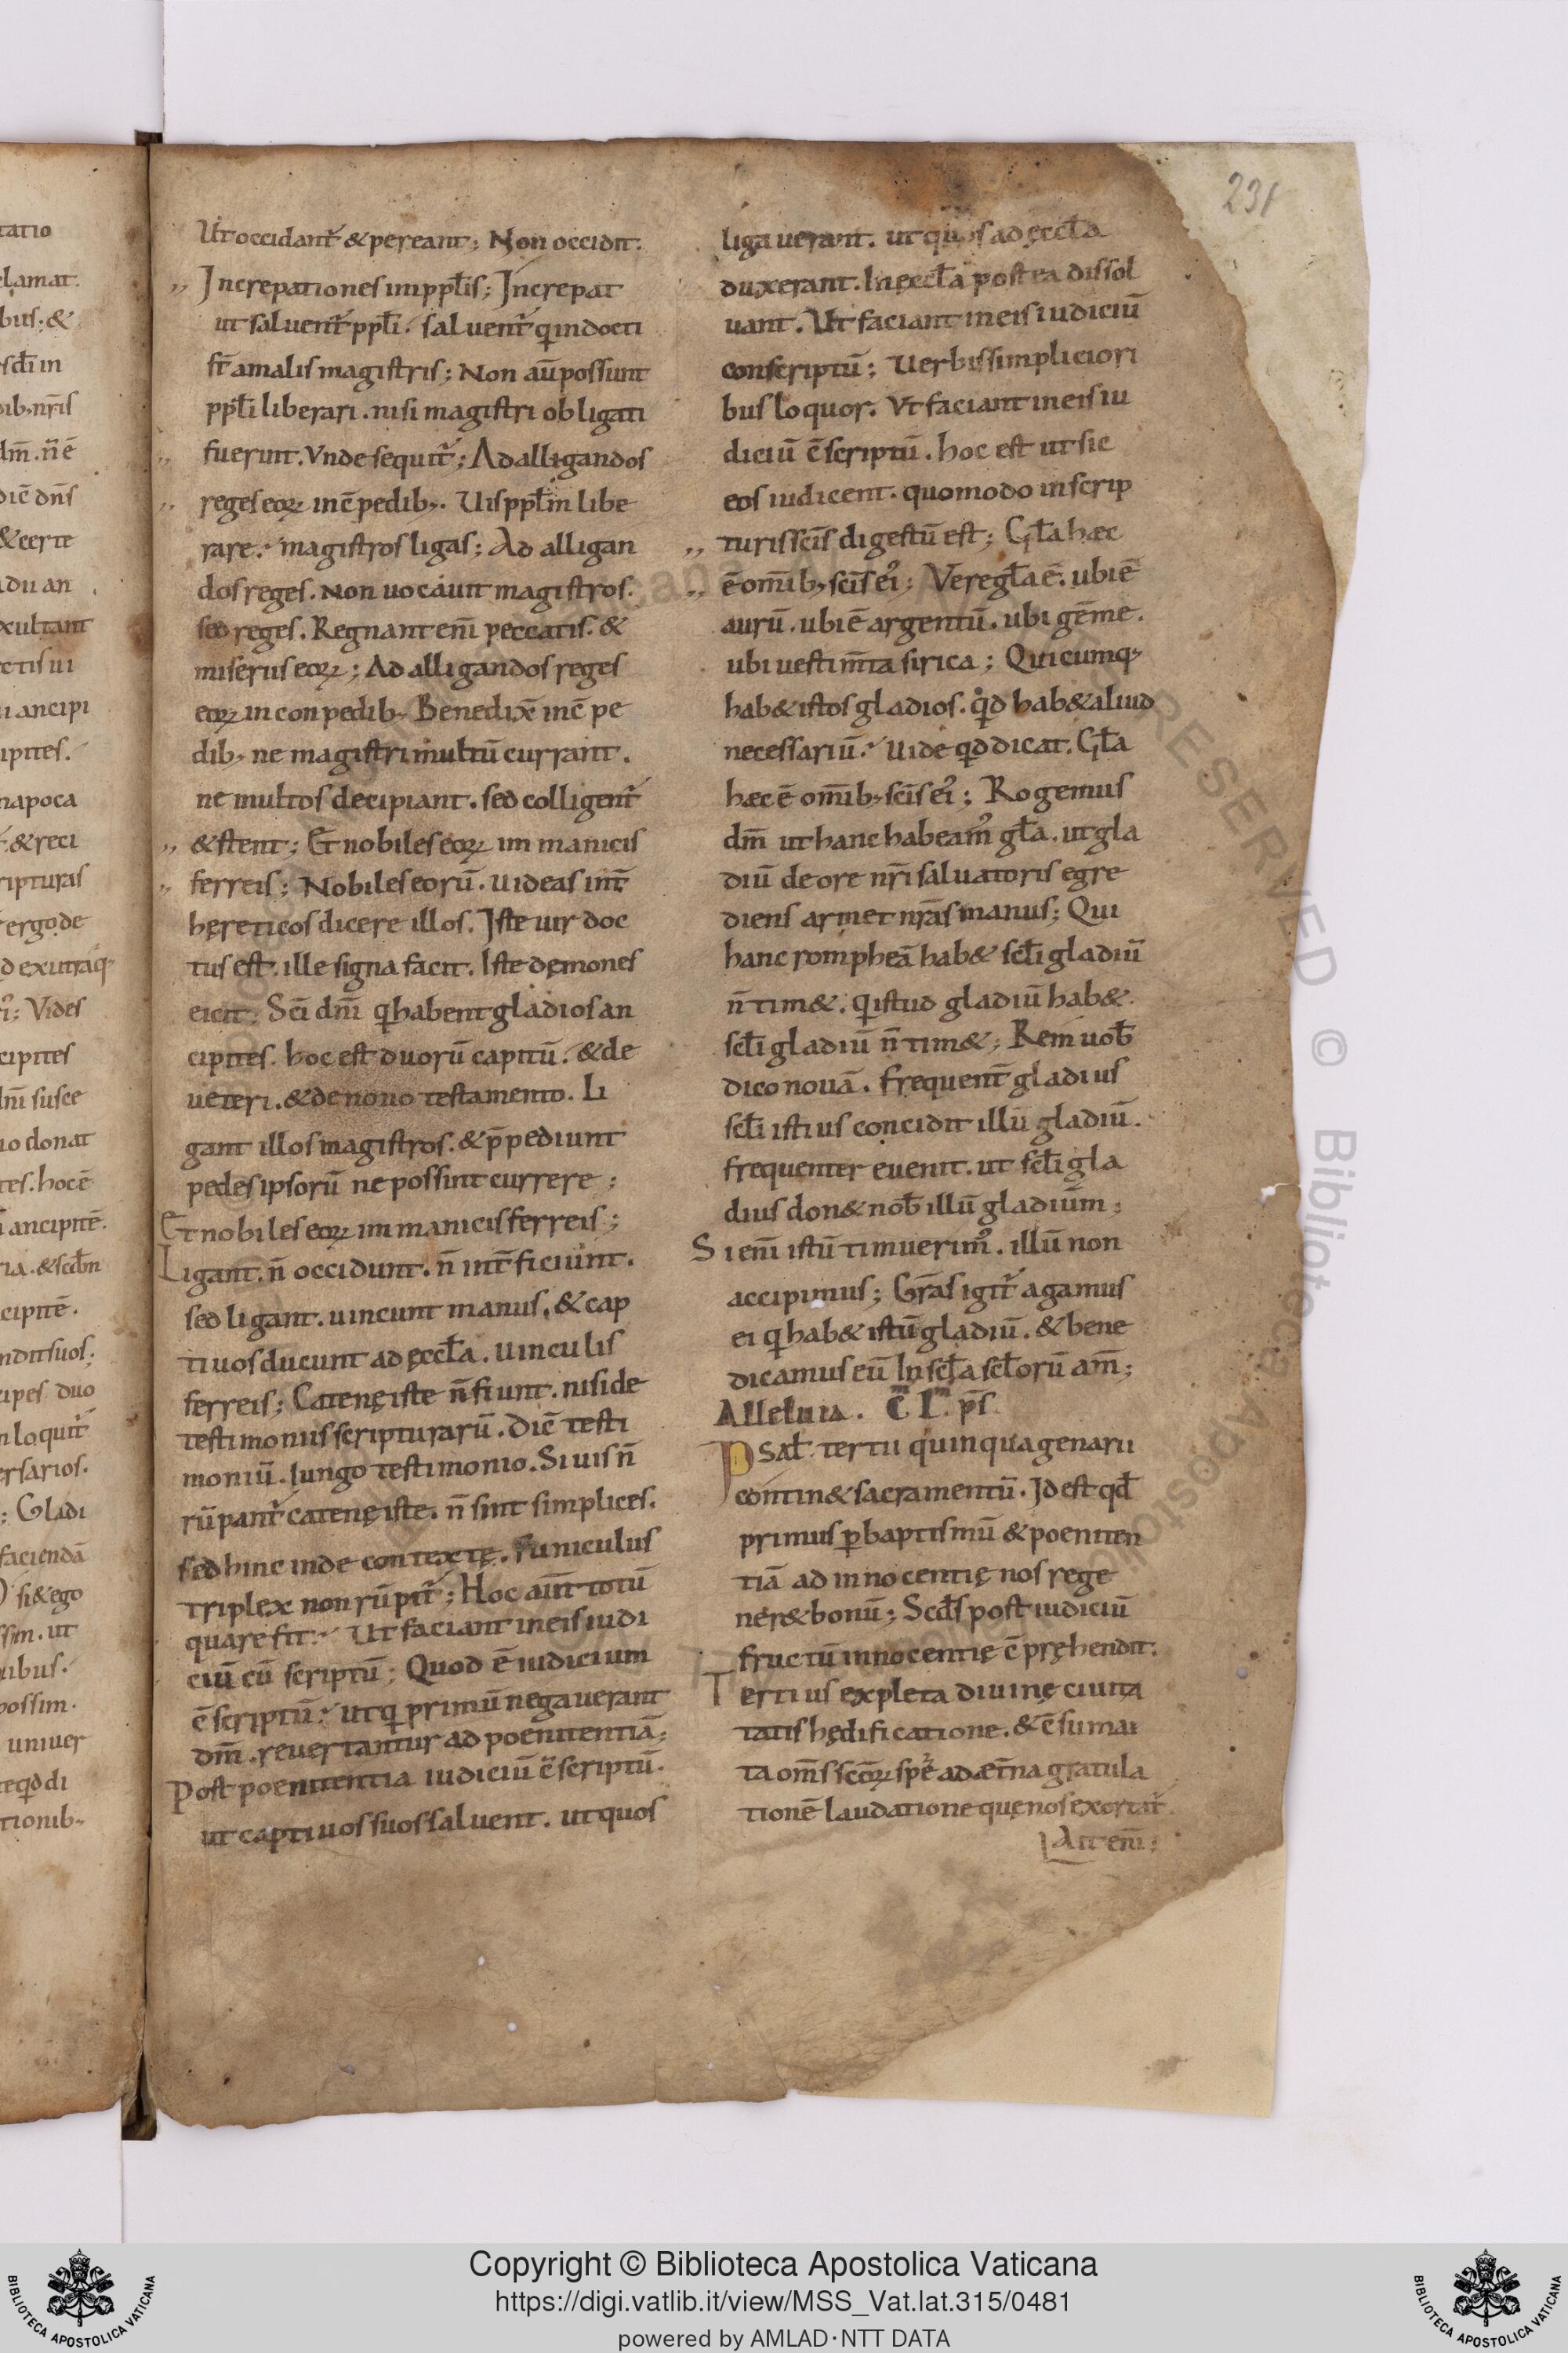 231
Ut occidant᷑ & pereant; Non occidit.
Increpationes in ppłis; Increpat
ut saluent᷑ ppłi. saluent᷑ q indocti
st̄ a malis magistris; Non aū possunt
ppłi liberari. nisi magistri obligati
fuerint. Vnde sequit᷑; Ad alligandos
reges eoꝝ in c̄pedib;. Uis ppłm libe
rare. magistros ligas; Ad alligan
dos reges. Non uocauit magistros.
sed reges. Regnant eni̅ peccatis. &
miseriis eoꝝ; Ad alligandos reges
eoꝝ in conpedib; Benedixe̅ in c̄pe
dib; ne magistri multū currant.
ne multos decipiant. sed colligent᷑
& stent; Et nobiles eoꝝ im manicis
ferreis; Nobiles eorū. Uideas int̄
hereticos dicere illos. Iste uir doc
tus est. ille signa facit. Iste dęmones
eicit. Sc̄i dn̄i q habent gladios an
cipites. hoc est duorū capitū. & de
ueteri. & de nouo testamento. Li
gant illos magistros. & p̄pediunt
pedes ipsorū ne possint currere;
Et nobiles eoꝝ im manicis ferreis;
Ligant. n̄ occidunt. n̄ int̄ficiunt.
sed ligant. uincunt manus. & cap
tiuos ducunt ad ęccła. Uinculis
ferreis; Catenę iste n̄ fiunt. nisi de
testimoniis scripturarū. Dic̄ testi
moniū. Iungo testimonio. Si uis n̄
rūpant᷑ catenę iste. n̄ sint simplices.
sed hinc inde contextę. Funiculus
triplex non rūpit᷑; Hoc aut̄ totū
quare fit. Ut faciant in eis iudi
ciū cū scriptū; Quod ē iudicium
c̄scriptū. ut q primū negauerant
dm̄. reuertantur ad poenitentiā;
Post poenitentia iudiciū c̄scriptū.
ut captiuos suos saluent. ut quos
ligauerant. ut quos ad ęccła
duxerant. In ęccła postea dissol
uant. Ut faciant in eis iudiciū
conscriptū; Uerbis simpliciori
bus loquor. Vt faciant in eis iu
diciū c̄scriptū. hoc est ut sic
eos iudicent. quomodo in scrip
turis sc̄is digestū est; Gła hæc
ē om̄ib; sc̄is ei᷒; Vere gła ē. ubi ē
aurū. ubi ē argentū. ubi gēme.
ubi uestim̄ta sirica; Quicumq;
hab& istos gladios. qͥd hab& aliud
necessariū. Uide qd dicat. Gła
hæc ē om̄ib; sc̄is ei᷒; Rogemus
dm̄ ut hanc habeam᷒ gła. ut gla
diū de ore nr̄i saluatoris egre
diens armet nr̄as manus; Qui
hanc ropheā hab& scłi gladiū
n̄ tim&. q istud gladiū hab&.
scłi gladiū n̄ tim&; Rem uob̄
dico nouā. frequent̄ gladius
scłi istius concidit illū gladiū.
frequenter euenit. ut scłi gla
dius don& nob̄ illū gladiūm;
Si eni̅ istū timuerim᷒. illū non
accipimus; Gr̄as igit᷑ agamus
ei q hab& istū gladiū. & bene
dicamus eū In scła scłorū am̄;
Alleluia. C̄ L. ps̄
Psał tertii quinquagenarii
contin& sacramentū. Id est qđ
primus p baptismū & poeniten
tiā ad innocentię nos rege
ner& bonū; Scđs post iudiciū
fructū innocentię c̄pręhendit.
Tertius expleta diuinę ciuita
tatis hędificatione. & c̄sumai
ta om̄s sc̄oꝝ spē ad æt̄na gratula
tionē laudatione quę nos exortat᷑
Ait eni̅;
Copyright © Biblioteca Apostolica Vaticana
https://digi.vatlib.it/view/MSS_Vat.lat.315/0481
powered by AMLAD·NTT DATA
BIBLIOTECA APOSTOLICA VATICANA
BIBLIOTECA APOSTOLICA VATICANA